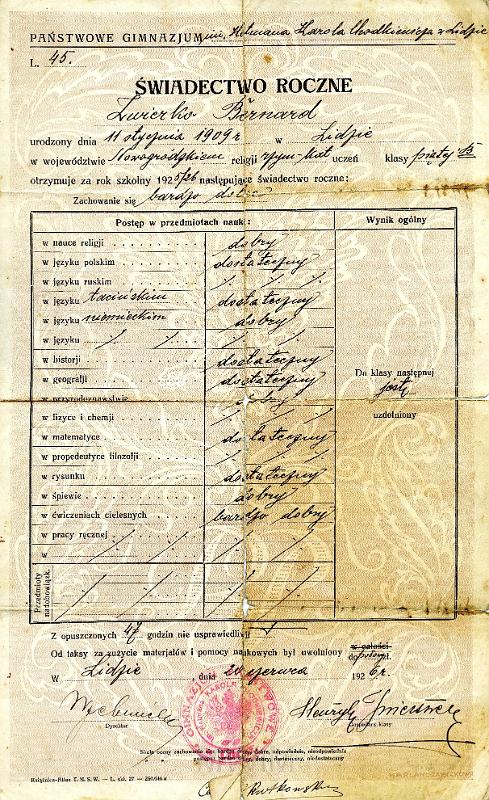 PAŃSTWOWE GIMNAZJUM im. Hetmana Karola Chodkiewicza w Lidzie
L. 45.
ŚWIADECTWO ROCZNE
Zwierko Bernard
urodzony dnia 11 stycznia 1909 r. w Lidzie
w województwie Nowogródzkiem religji rzym-kat uczeń klasy piątej B
otrzymuje za rok szkolny 1925/26 następujące świadectwo roczne:
Zachowanie się bardzo dobre
Postęp w przedmiotach nauk: Wynik ogólny
w nauce religji dobry
w języku polskim dostateczny
w języku ruskim
w języku łacińskim dostateczny
w języku niemieckim dobry
w języku
w historji dostateczny
w geografji dostateczny
Do klasy następnej
w przyrodoznawstwie dobry
jest
w fizyce i chemji
uzdolniony
w matematyce dostateczny
w propedeutyce filozofji
w rysunku dostateczny
w śpiewie dobry
w ćwiczeniach cielesnych bardzo dobry
w pracy ręcznej
w
Przedmioty nadobowiązk.
Z opuszczonych 47 godzin nie usprawiedliwił
Od taksy za zużycie materjałów i pomocy naukowych był uwolniony w całości
do połowy
W Lidzie, dnia 24 czerwca 1926 r.
Dyrektor
Henryk
Gospodarz klasy
Skala ocen: zachowania się: bardzo dobre, dobre, odpowiednie, nieodpowiednie
postępu: bardzo dobry, dobry, dostateczny, niedostateczny
Książnica-Atlas T. N. S. W. — L. dz. 27 —
Rutkowski